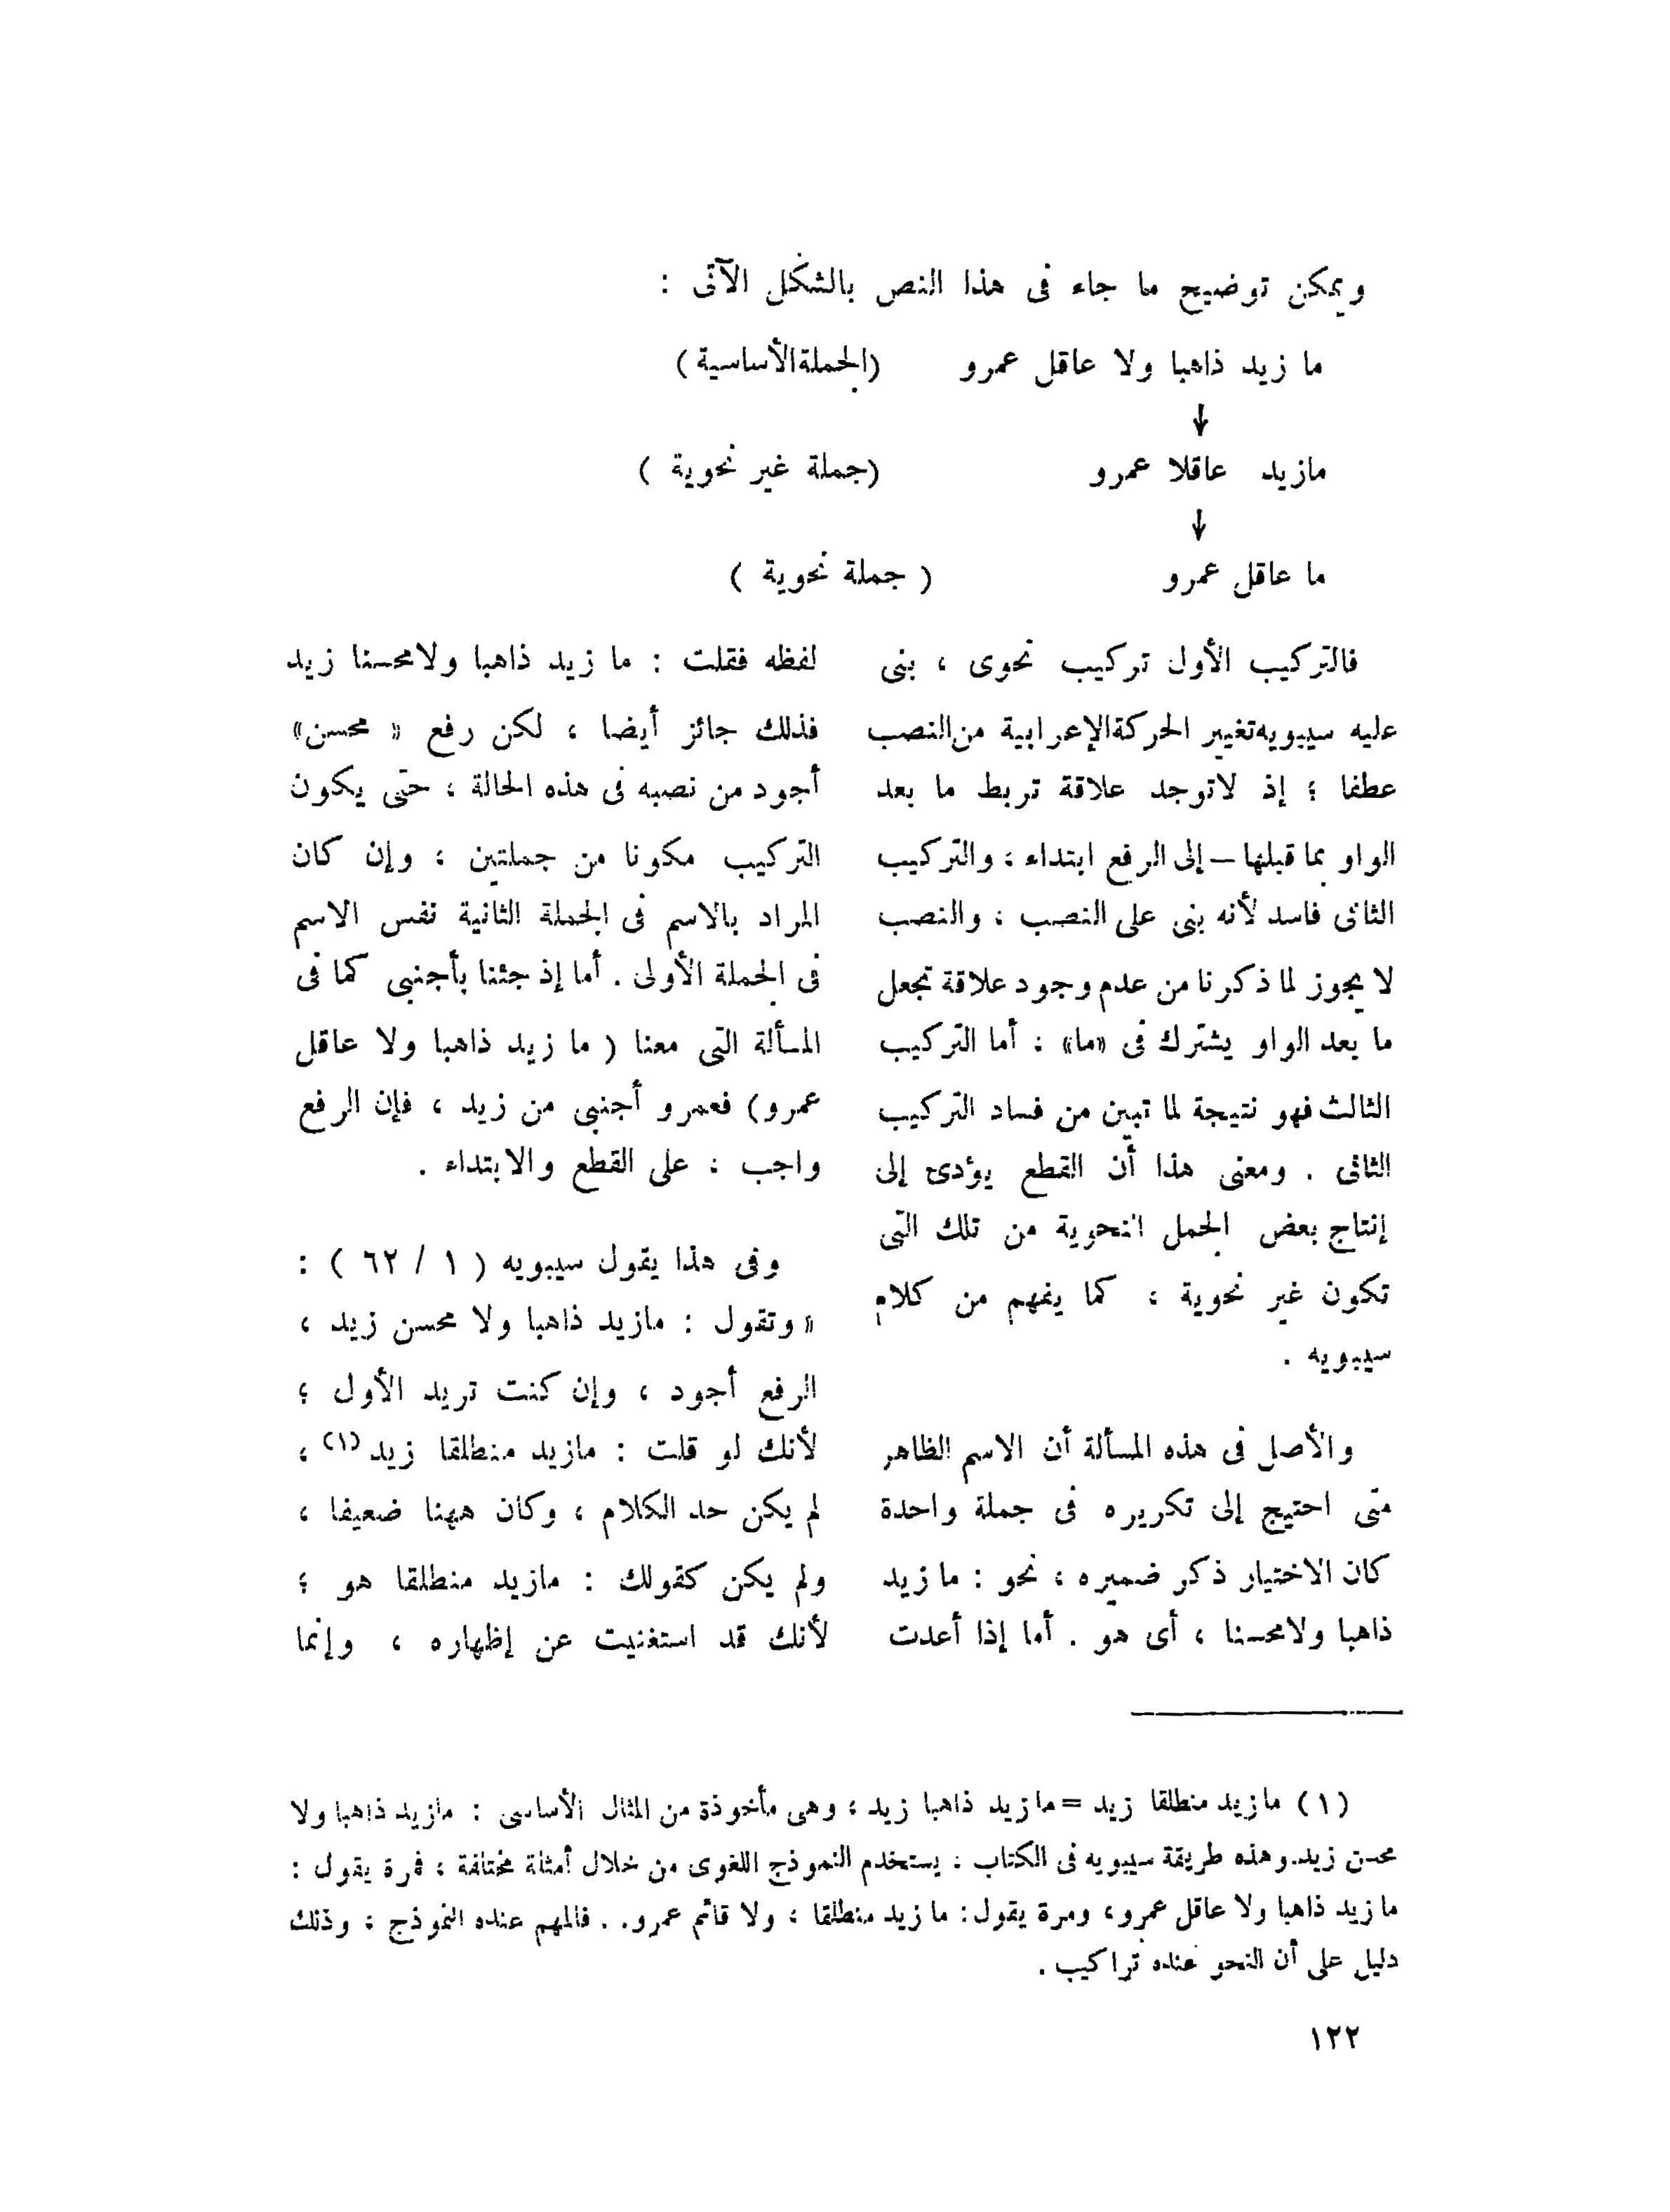 ويمكن توضيح ما جاء فى هذا النص بالشكل الآتى :
ما زيد ذاهبا ولا عاقل عمرو (الجملة الأساسية)
↓
مازيد عاقلا عمرو (جملة غير نحوية )
↓
ما عاقل عمرو ( جملة نحوية )
فالتركيب الأول تركيب نحوى ، بنى
عليه سيبويه تغيير الحركة الإعرابية من النصب
عطفا ؛ إذ لاتوجد علاقة تربط ما بعد
الواو بما قبلها – إلى الرفع ابتداء ، والتركيب
الثانى فاسد لأنه بنى على النصب ، والنصب
لا يجوز لما ذكرنا من عدم وجود علاقة تجعل
ما بعد الواو يشترك فى «ما» ، أما التركيب
الثالث فهو نتيجة لما تبين من فساد التركيب
الثانى . ومعنى هذا أن القطع يؤدى إلى
إنتاج بعض الجمل النحوية من تلك التى
تكون غير نحوية ، كما يفهم من كلام
سيبويه .
والأصل فى هذه المسألة أن الاسم الظاهر
متى احتيج إلى تكريره فى جملة واحدة
كان الاختيار ذكر ضميره ، نحو : ما زيد
ذاهبا ولامحسنا ، أى هو . أما إذا أعدت
لفظه فقلت : ما زيد ذاهبا ولامحسنا زيد
فذلك جائز أيضا ، لكن رفع « محسن»
أجود من نصبه فى هذه الحالة ، حتى يكون
التركيب مكونا من جملتين ، وإن كان
المراد بالاسم فى الجملة الثانية نفس الاسم
فى الجملة الأولى . أما إذ جئنا بأجنبى كما فى
المسألة التى معنا ( ما زيد ذاهبا ولا عاقل
عمرو) فعمرو أجنبى من زيد ، فإن الرفع
واجب ، على القطع والابتداء .
وفى هذا يقول سيبويه ( ١ / ٦٢ ) :
« وتقول : مازيد ذاهبا ولا محسن زيد ،
الرفع أجود ، وإن كنت تريد الأول ؛
لأنك لو قلت : مازيد منطلقا زيد (١) ،
لم يكن حد الكلام ، وكان ههنا ضعيفا ،
ولم يكن كقولك : مازيد منطلقا هو ؛
لأنك قد استغنيت عن إظهاره ، وإنما
(١) مازيد منطلقا زيد = مازيد ذاهبا زيد ، وهى مأخوذة من المثال الأساسى : مازيد ذاهبا ولا
محسن زيد. وهذه طريقة سيبويه فى الكتاب ، يستخدم النموذج اللغوى من خلال أمثلة مختلفة ، فمرة يقول :
ما زيد ذاهبا ولا عاقل عمرو، ومرة يقول: ما زيد منطلقا ، ولا قائم عمرو. . فالمهم عنده النموذج ، وذلك
دليل على أن النحو عنده تراكيب .
١٢٢